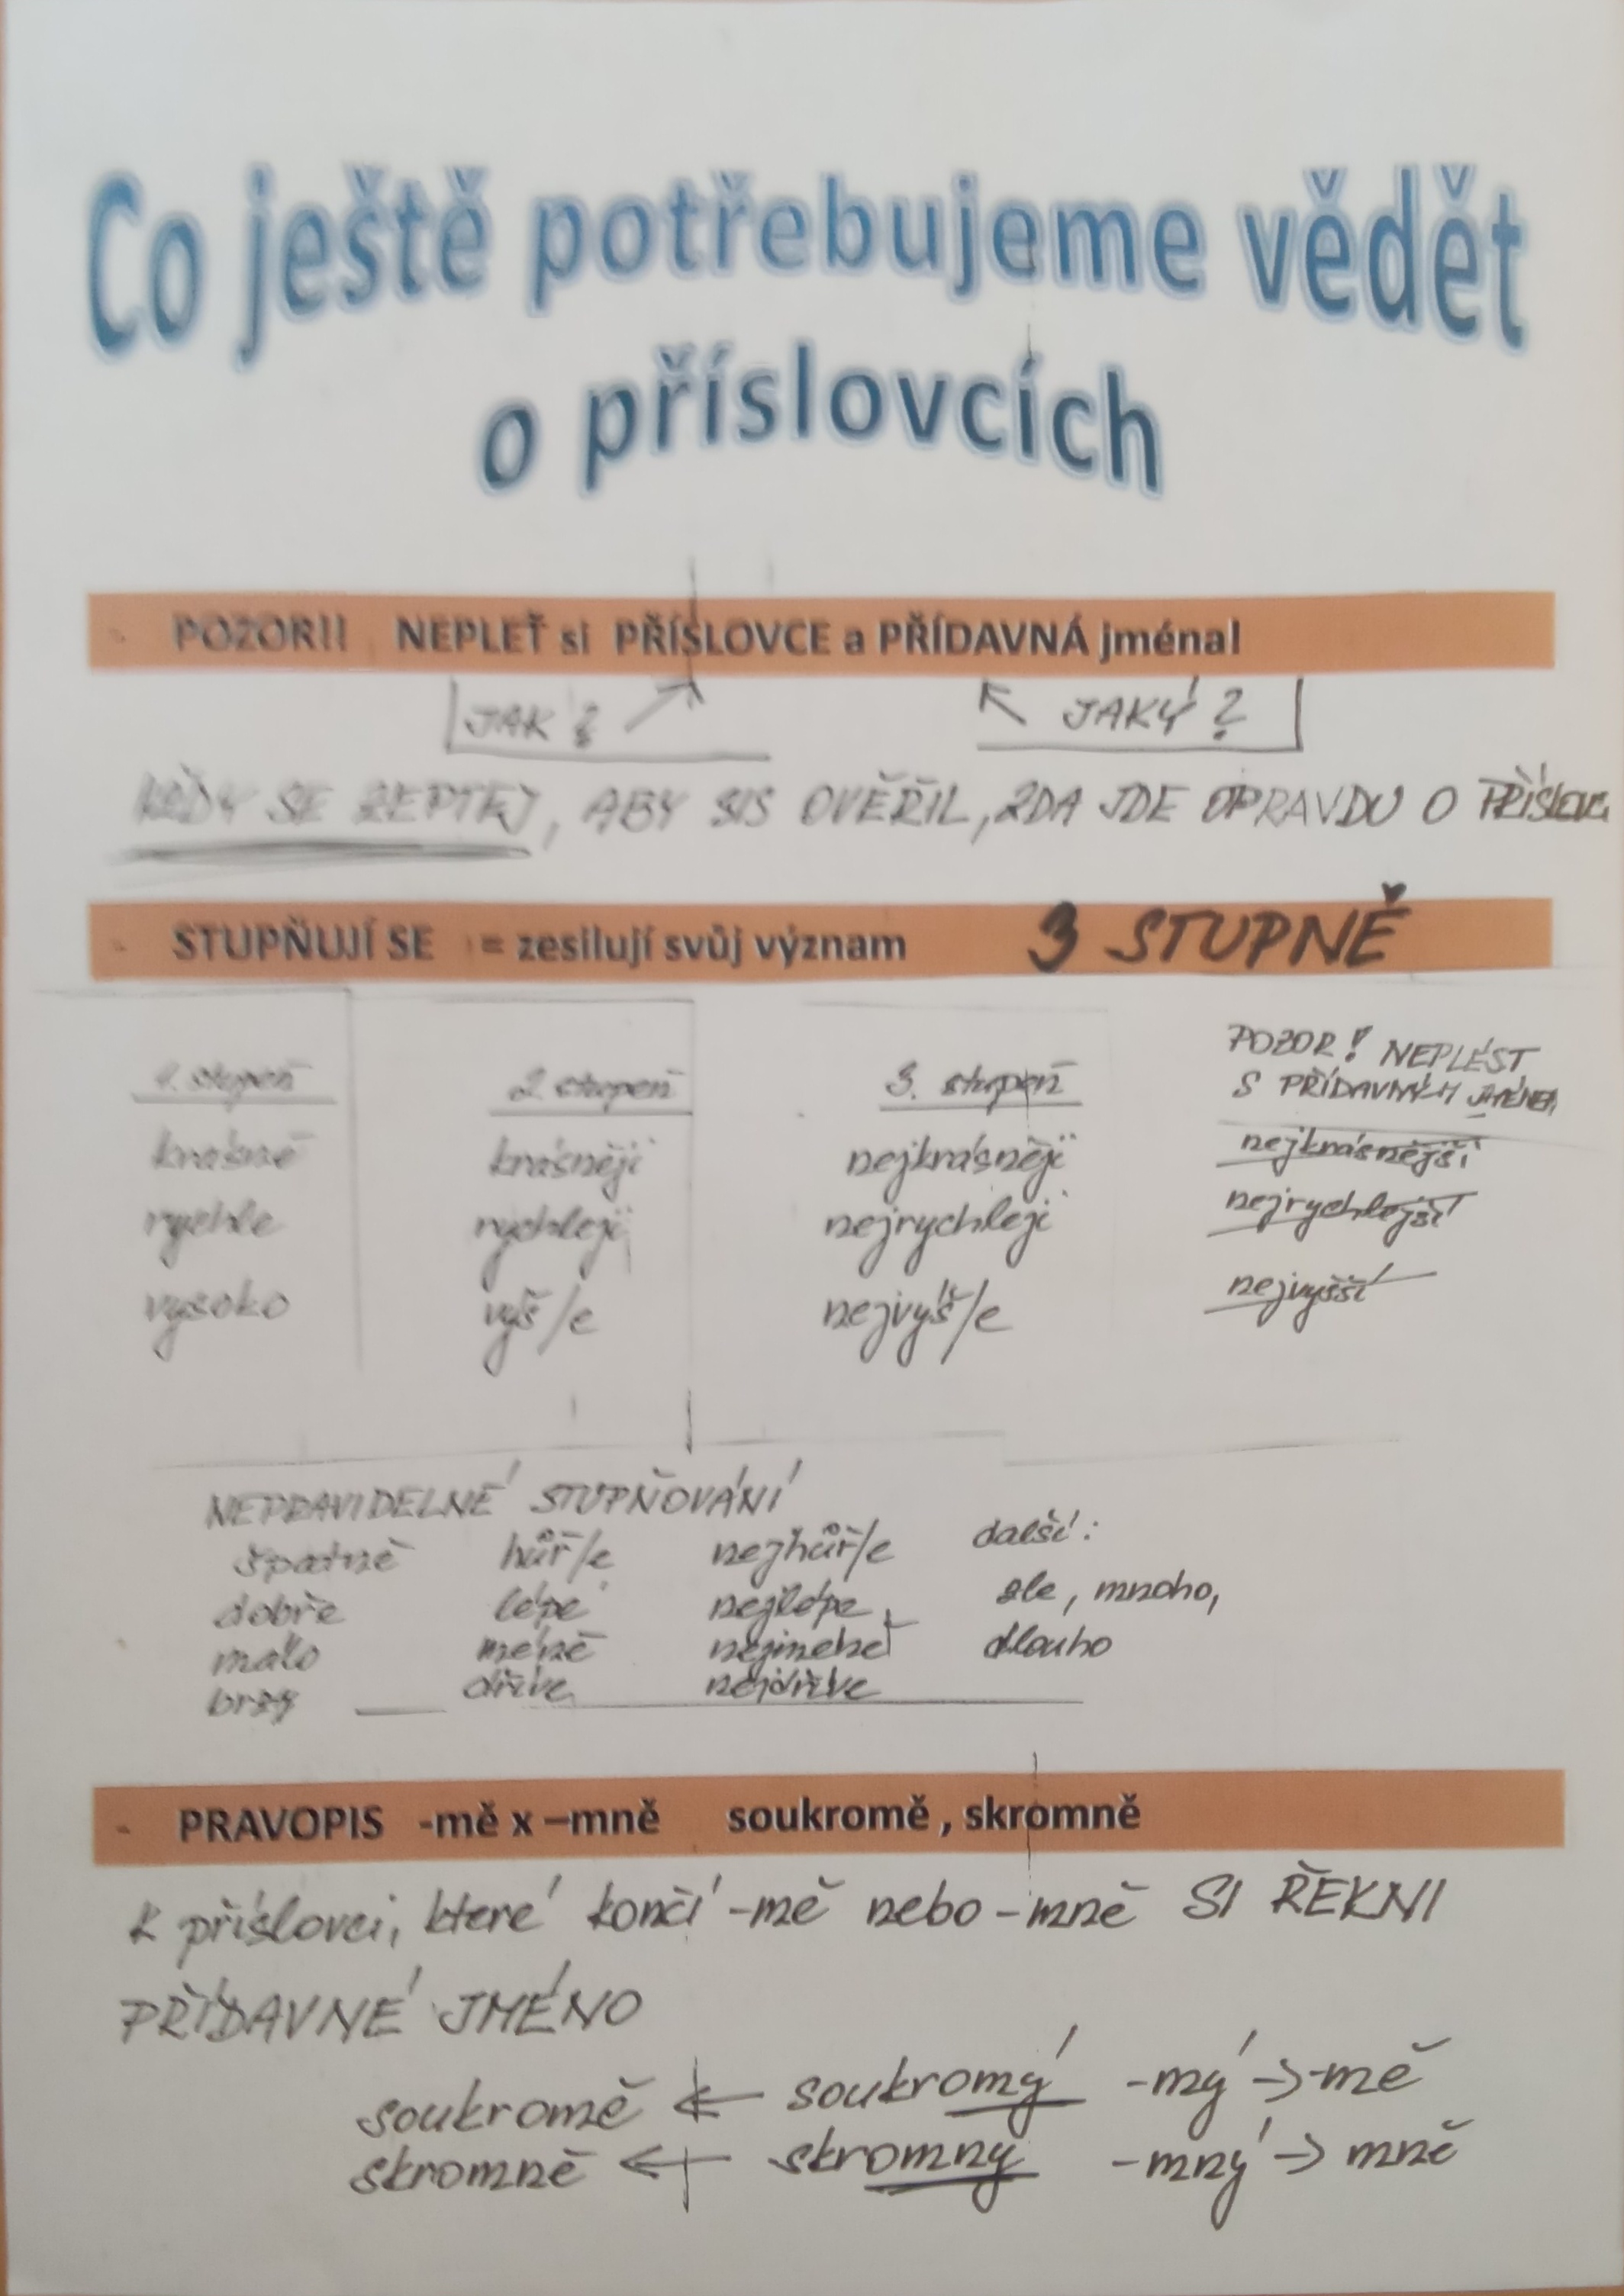 Co ještě potřebujeme vědět
o příslovcích
- POZOR!! NEPLEŤ si PŘÍSLOVCE a PŘÍDAVNÁ jména!
JAK? JAKÝ?
VŽDY SE ZEPTEJ, ABY SIS OVĚŘIL, ZDA JDE OPRAVDU O
- STUPŇUJÍ SE = zesilují svůj význam 3 STUPNĚ
POZOR! NEPLÉST
1. stupeň 2. stupeň 3. stupeň S PŘÍDAVNÝM
krásně krásněji nejkrásněji nejkrásnější
rychle rychleji nejrychleji nejrychlejší
vysoko výš/e nejvýš/e nejvyšší
NEPRAVIDELNÉ STUPŇOVÁNÍ
špatně hůř/e nejhůř/e další:
dobře lépe nejlépe zle, mnoho,
málo méně nejméně dlouho
brzy dříve nejdříve
- PRAVOPIS -mě x –mně soukromě , skromně
K příslovci, které končí -mě nebo -mně SI ŘEKNI
PŘÍDAVNÉ JMÉNO
soukromě ← soukromý -mý -> -mě
skromně ← skromný -mný -> mně